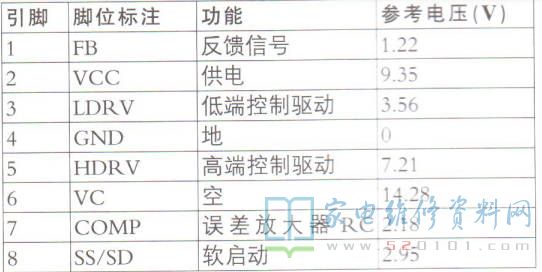 引脚 脚位标注 功能 参考电压(V)
1 FB 反馈信号 1.22
2 VCC 供电 9.35
3 LDRV 低端控制驱动 3.56
4 GND 地 0
5 HDRV 高端控制驱动 7.21
6 VC 空 14.28
7 COMP 误差放大器RC 2.18
8 SS/SD 软启动 2.95
家电维修资料网
www.520101.com